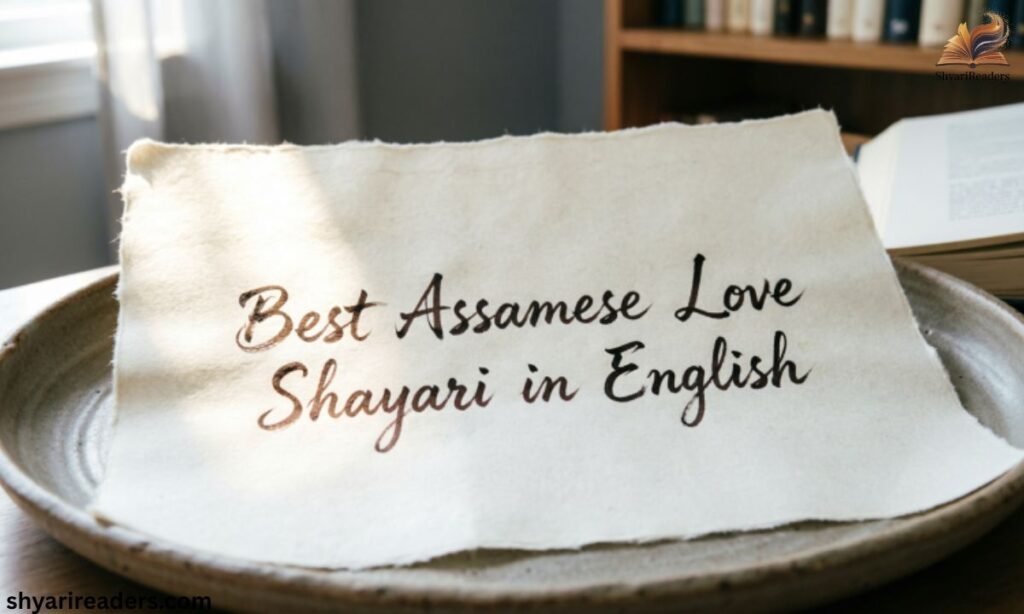 ShyariReaders
Best Assamese Love
Shayari in English
shyarireaders.com